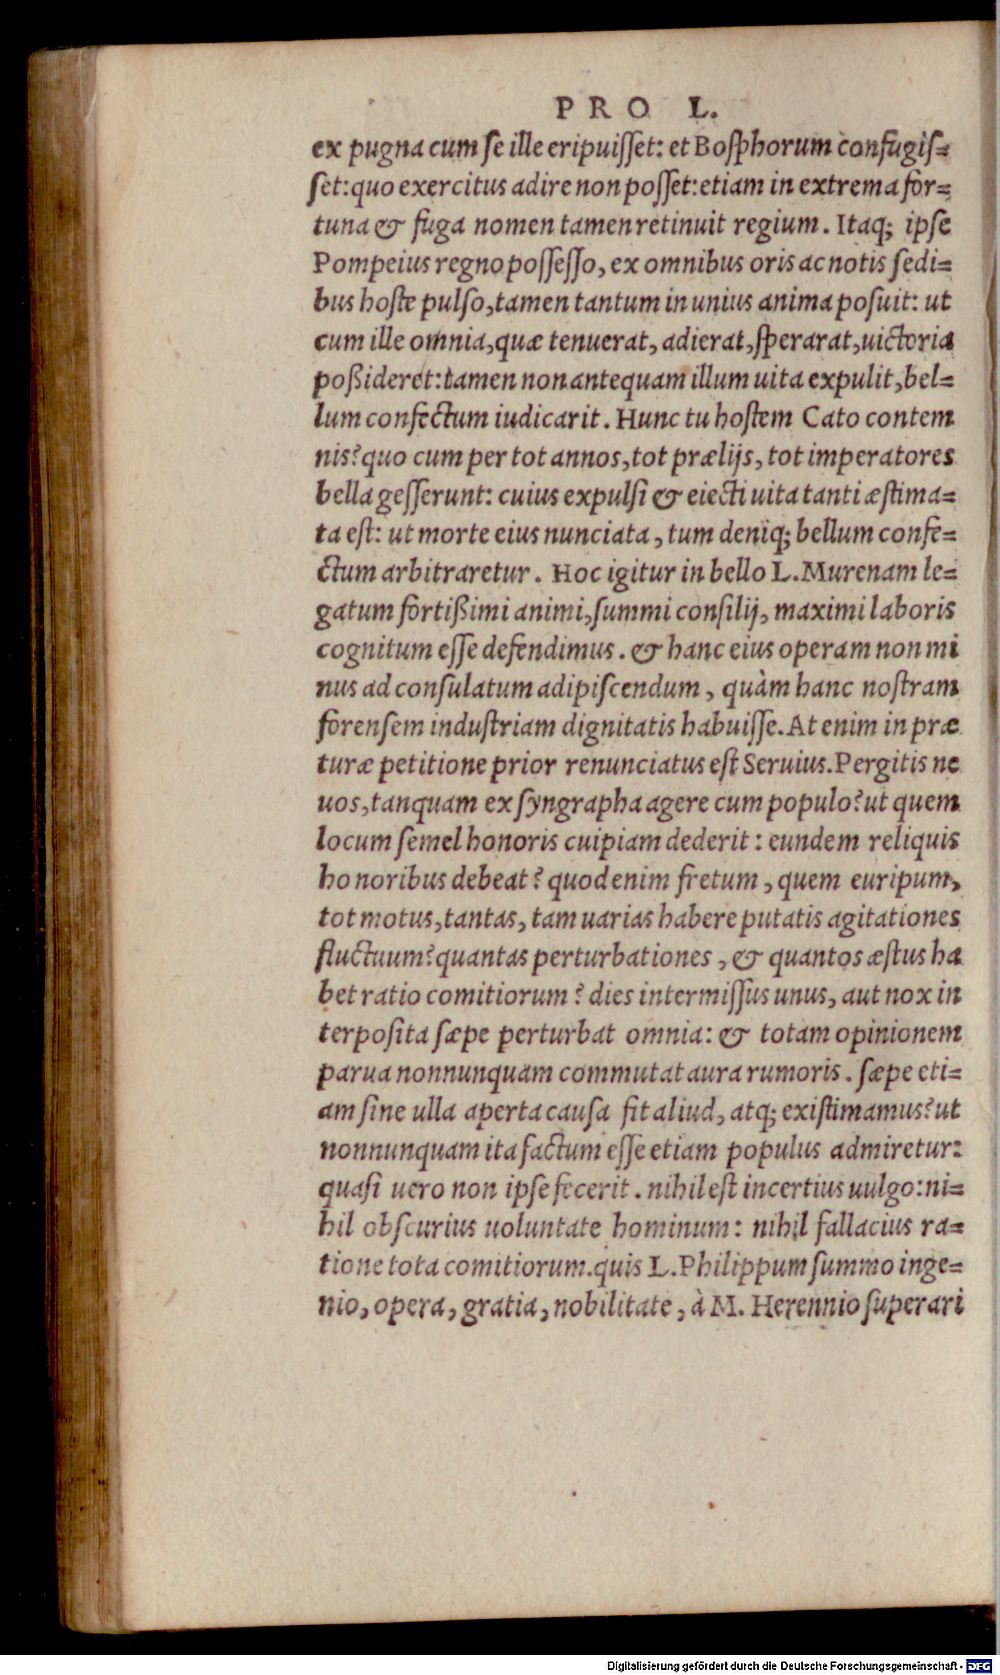 PRO L.
ex pugna cum ſe ille eripuiſſet: et Boſphorum confugiſ=
ſet: quo exercitus adire non poſſet: etiam in extrema for=
tuna & fuga nomen tamen retinuit regium. Itaq; ipſe
Pompeius regno poſſeſſo, ex omnibus oris ac notis ſedi=
bus hoſte pulſo, tamen tantum in unius anima poſuit: ut
cum ille omnia, quæ tenuerat, adierat, ſperarat, uictoria
poßideret: tamen non antequam illum uita expulit, bel=
lum confectum iudicarit. Hunc tu hoſtem Cato contem
nis? quo cum per tot annos, tot prælijs, tot imperatores
bella geſſerunt: cuius expulſi & eiecti uita tanti æſtima=
ta eſt: ut morte eius nunciata, tum deniq; bellum confe=
ctum arbitraretur. Hoc igitur in bello L. Murenam le=
gatum fortißimi animi, ſummi conſilij, maximi laboris
cognitum eſſe defendimus. & hanc eius operam non mi
nus ad conſulatum adipiſcendum, quàm hanc noſtram
forenſem induſtriam dignitatis habuiſſe. At enim in præ
turæ petitione prior renunciatus eſt Seruius. Pergitis ne
uos, tanquam ex ſyngrapha agere cum populo? ut quem
locum ſemel honoris cuipiam dederit: eundem reliquis
honoribus debeat? quod enim fretum, quem euripum,
tot motus, tantas, tam uarias habere putatis agitationes
fluctuum? quantas perturbationes, & quantos æſtus ha
bet ratio comitiorum? dies intermiſſus unus, aut nox in
terpoſita ſæpe perturbat omnia: & totam opinionem
parua nonnunquam commutat aura rumoris. ſæpe eti=
am ſine ulla aperta cauſa fit aliud, atq; exiſtimamus? ut
nonnunquam ita factum eſſe etiam populus admiretur:
quaſi uero non ipſe fecerit. nihil eſt incertius uulgo: ni=
hil obſcurius uoluntate hominum: nihil fallacius ra=
tione tota comitiorum. quis L. Philippum ſummo inge=
nio, opera, gratia, nobilitate, à M. Herennio ſuperari
Digitalisierung gefördert durch die Deutsche Forschungsgemeinschaft - DFG